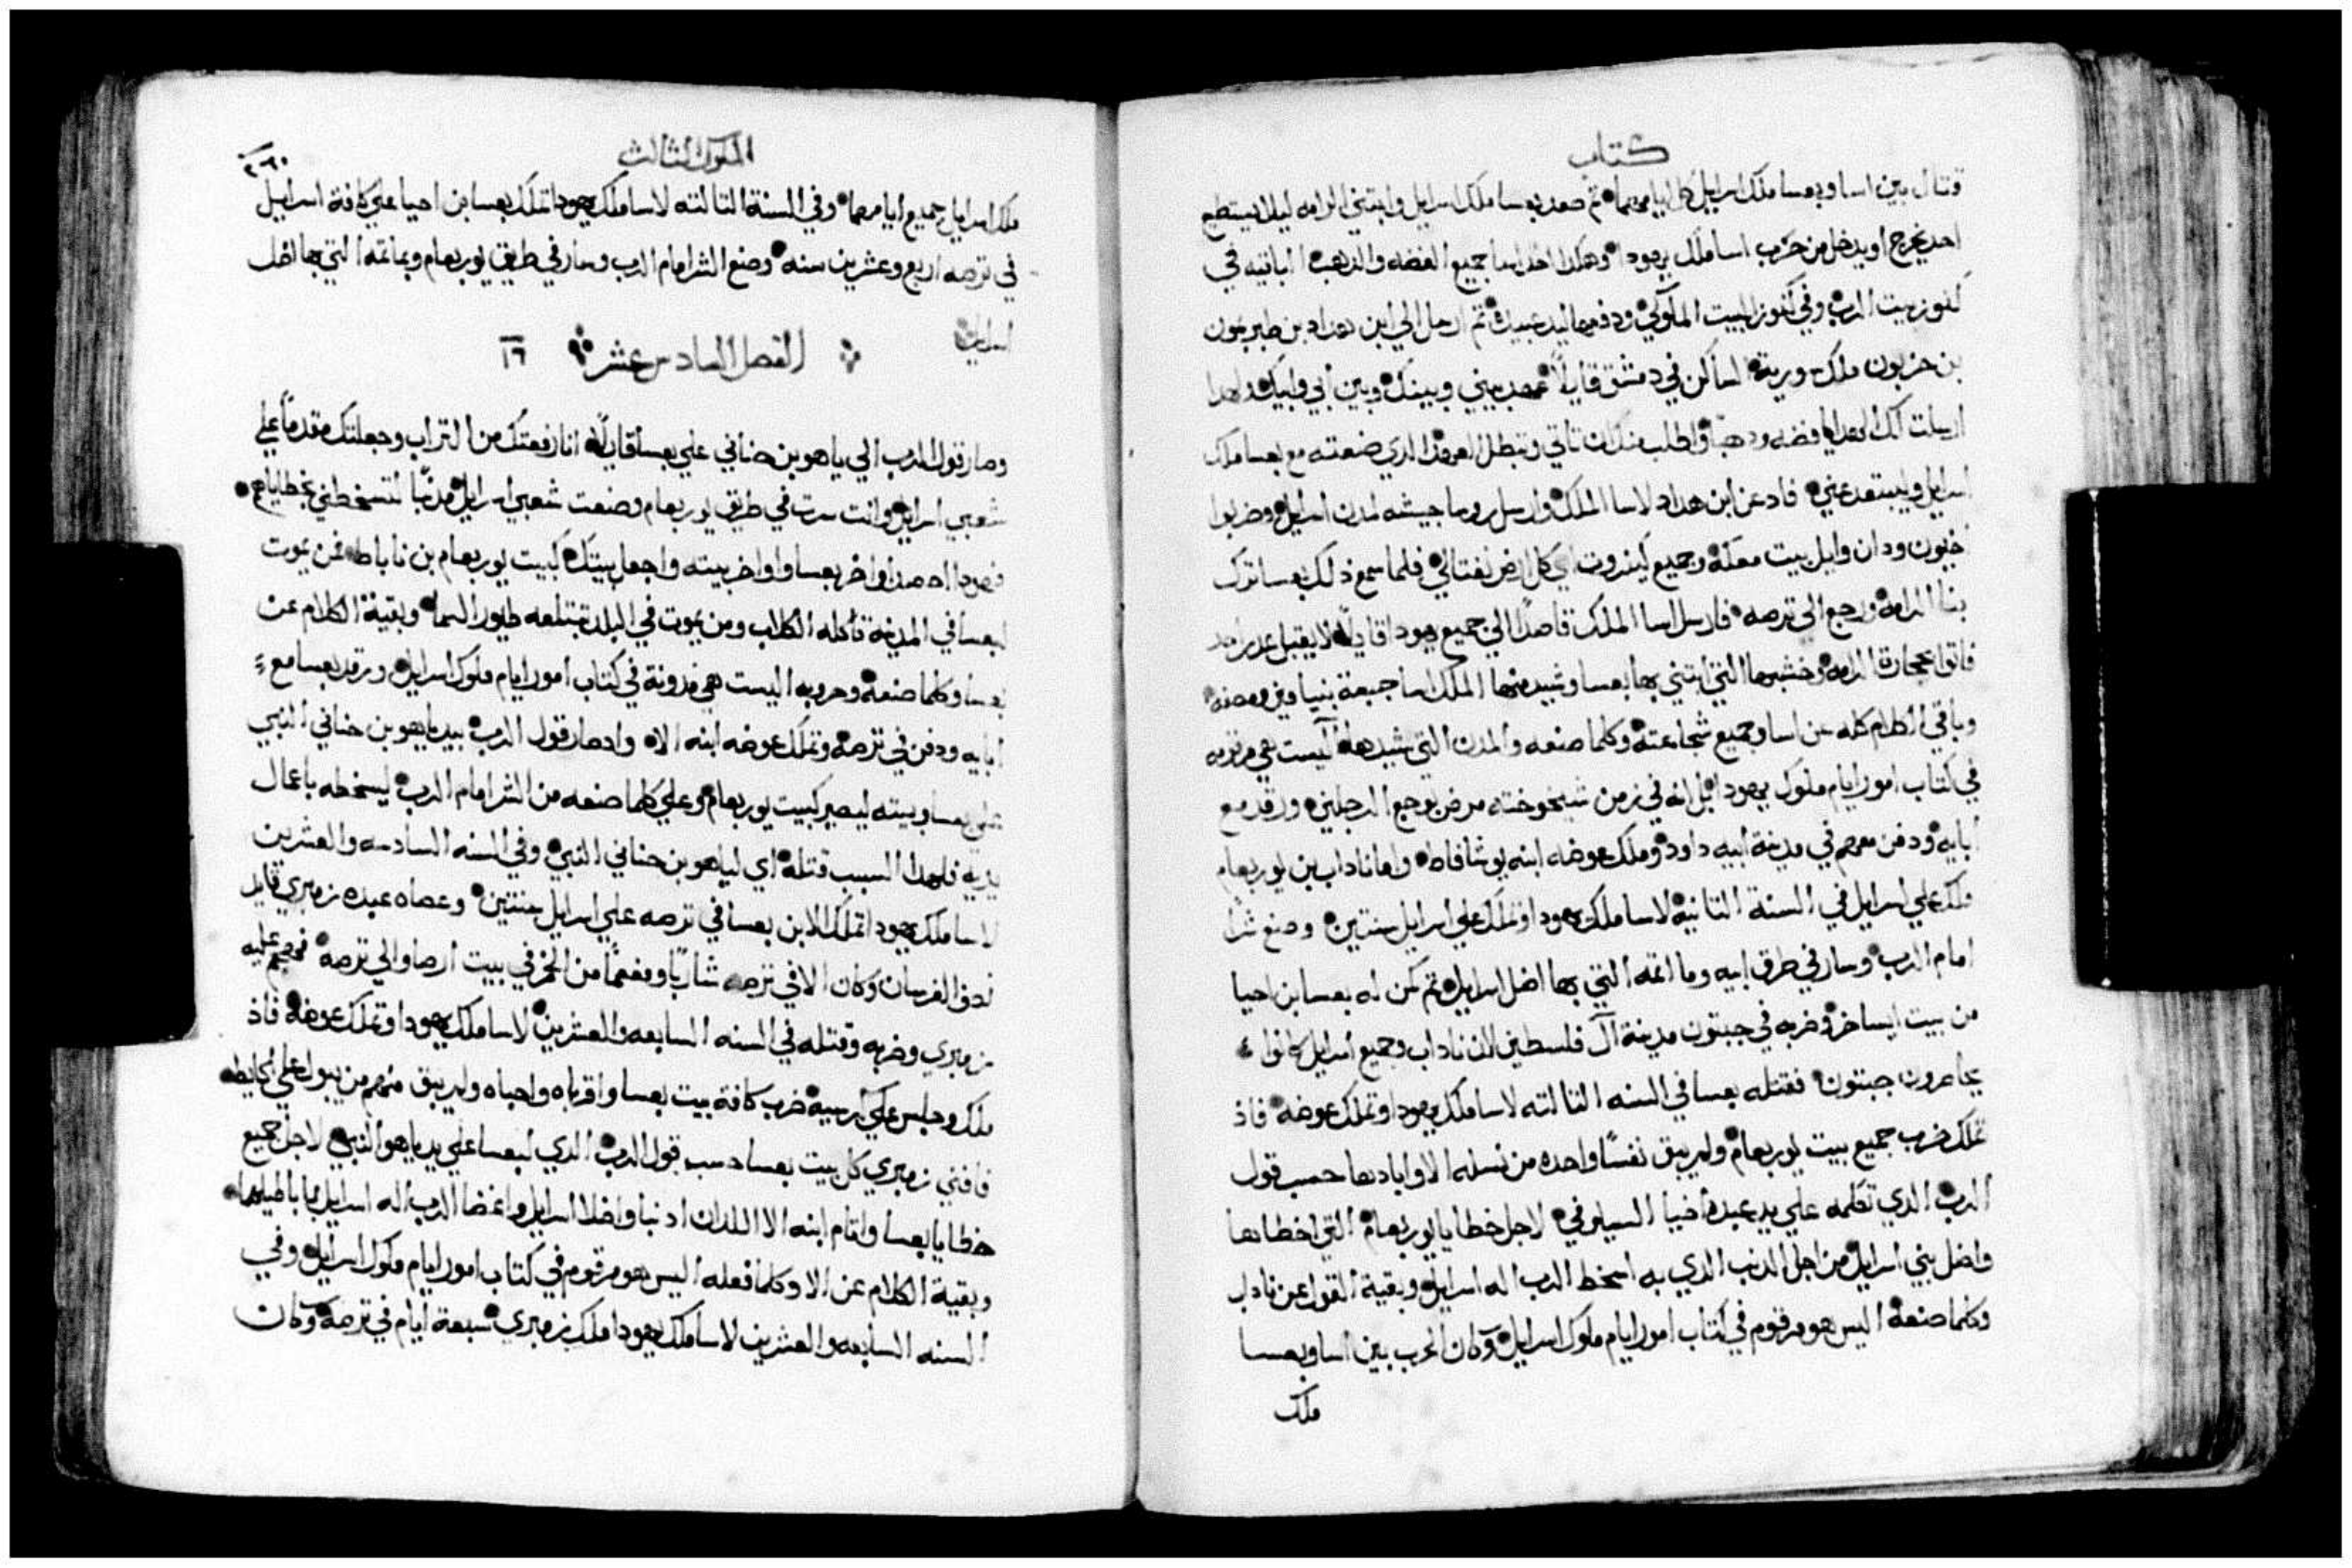 كتاب
قتال بين اسا وبعسا ملك اسرايل كل ايامهما ثم صعد بعسا ملك اسرايل وابتني الرامه ليلا يستطيع
احد يخرج او يدخل من حزب اسا ملك يهودا وهكذا اخذ اسا جميع الفضه والذهب الباقيه في
كنوز بيت الرب وفي كنوز البيت الملوكي ودفعها ليد عبيده ثم ارسل الي ابن هداد بن طبريمون
بن حزيون ملك سورية الساكن في دمشق قايلاً عهد بيني وبينك وبين ابي وابيك
ارسلت لك هدايا فضه ودهباً واطلب منك ان تاتي وتبطل العهد الدي صنعته مع بعسا ملك
اسرايل ويبتعد عني فادعن ابن هداد لاسا الملك وارسل روسا جيشه لمدن اسرايل وضربوا
عيون ودان وابل بيت معكه وجميع كينروت اي كل ارض نفتالي فلما سمع دلك بعسا ترك
بنا الرامه ورجع الي ترصه فارسل اسا الملك قاصداً الي جميع يهودا قايلاً لا يقبل عدر احد
فاتوا بحجارة الرامه وخشبها التي ابتني بها بعسا وشيد منها الملك اسا جبعة بنيامين ومصفه
وباقي الكلام كله عن اسا وجميع شجاعته وكلما صنعه والمدن التي شيدها اليست هي مرقومه
في كتاب امور ايام ملوك يهودا بل انه في زمن شيخوخته مرض بوجع الرجلين ورقد مع
ابايه ودفن معهم في مدينة ابيه داود وملك عوضه ابنه يوشافاط واما ناداب بن يوربعام
ملك علي اسرايل في السنة التانية لاسا ملك يهودا وتملك علي اسرايل سنتين وصنع شراً
امام الرب وسار في طرق ابيه وماتمه التي بها اضل اسرايل ثم كمن له بعسا بن احيا
من بيت ايساخر وضربه في جبتون مدينة آل فلسطين لان ناداب وجميع اسرايل كانوا
يحاصرون جبتون فقتله بعسا في السنه التالته لاسا ملك يهودا وتملك عوضه فاذ
تملك ضرب جميع بيت يوربعام ولم يبق نفساً واحده من نسله الا وابادها حسب قول
الرب الدي تكلمه علي يد عبده احيا السيلوني لاجل خطايا يوربعام التي اخطاها
واضل بني اسرايل من اجل الدنب الدي به اسخط الرب اله اسرايل وبقية القول عن ناداب
وكلما صنعه اليس هو مرقوم في كتاب امور ايام ملوك اسرايل وكان الحرب بين اسا وبعسا
ملك
الملوك الثالث
٢٦٠
ملك اسرايل جميع ايامهما وفي السنة التالته لاسا ملك يهودا تملك بعسا بن احيا علي كافة اسرايل
في ترصه اربع وعشرين سنه وصنع الشر امام الرب وسار في طريق يوربعام وبماتمه التي بها اضل
اسرايل
الفصل السادس عشر ١٦
وصار قول الرب الي ياهو بن حناني علي بعسا قايلاً انا رفعتك من التراب وجعلتك مقدماً علي
شعبي اسرايل وانت سرت في طريق يوربعام وصنعت شعبي اسرايل مدنباً لتسخطني بخطاياهم
اواخر بعسا واواخر بيته واجعل بيتك كبيت يوربعام بن ناباط فمن يموت
لبعسا في المدينة تاكله الكلاب ومن يموت في البلد تبتلعه طيور السما وبقية الكلام عن
بعسا وكلما صنعه وحروبه اليست هي مدونة في كتاب امور ايام ملوك اسرايل ورقد بعسا مع
ابايه ودفن في ترصه وتملك عوضه ابنه الا وادصار قول الرب بيد ياهو بن حناني النبي
علي بعسا وبيته ليصير كبيت يوربعام وعلي كلما صنعه من الشر امام الرب ليسخطه باعمال
يديه فلهدا السبب قتله اي لياهو بن حناني النبي وفي السنه السادسه والعشرين
لاسا ملك يهودا تملك الا بن بعسا في ترصه علي اسرايل سنتين وعصاه عبده زمبري قايد
نصف الفرسان وكان الا في ترصه شارباً ومفعماً من الخمر في بيت ارصا والي ترصه فهجم عليه
زمبري وضربه وقتله في السنه السابعه والعشرين لاسا ملك يهودا وتملك عوضه فاذ
ملك وجلس علي كرسيه ضرب كافة بيت بعسا واقرباه واحباه ولم يبق منهم من يبول علي الحايط
فافني زمبري كل بيت بعسا حسب قول الرب الدي لبعسا علي يد ياهو النبي لاجل جميع
خطايا بعسا واتام ابنه الا اللدان ادنبا واضلا اسرايل واغضبا الرب اله اسرايل باباطيلهما
وبقية الكلام عن الا وكلما فعله اليس هو مرقوم في كتاب امور ايام ملوك اسرايل وفي
السنه السابعه والعشرين لاسا ملك يهودا ملك زمبري سبعة ايام في ترصه وكان